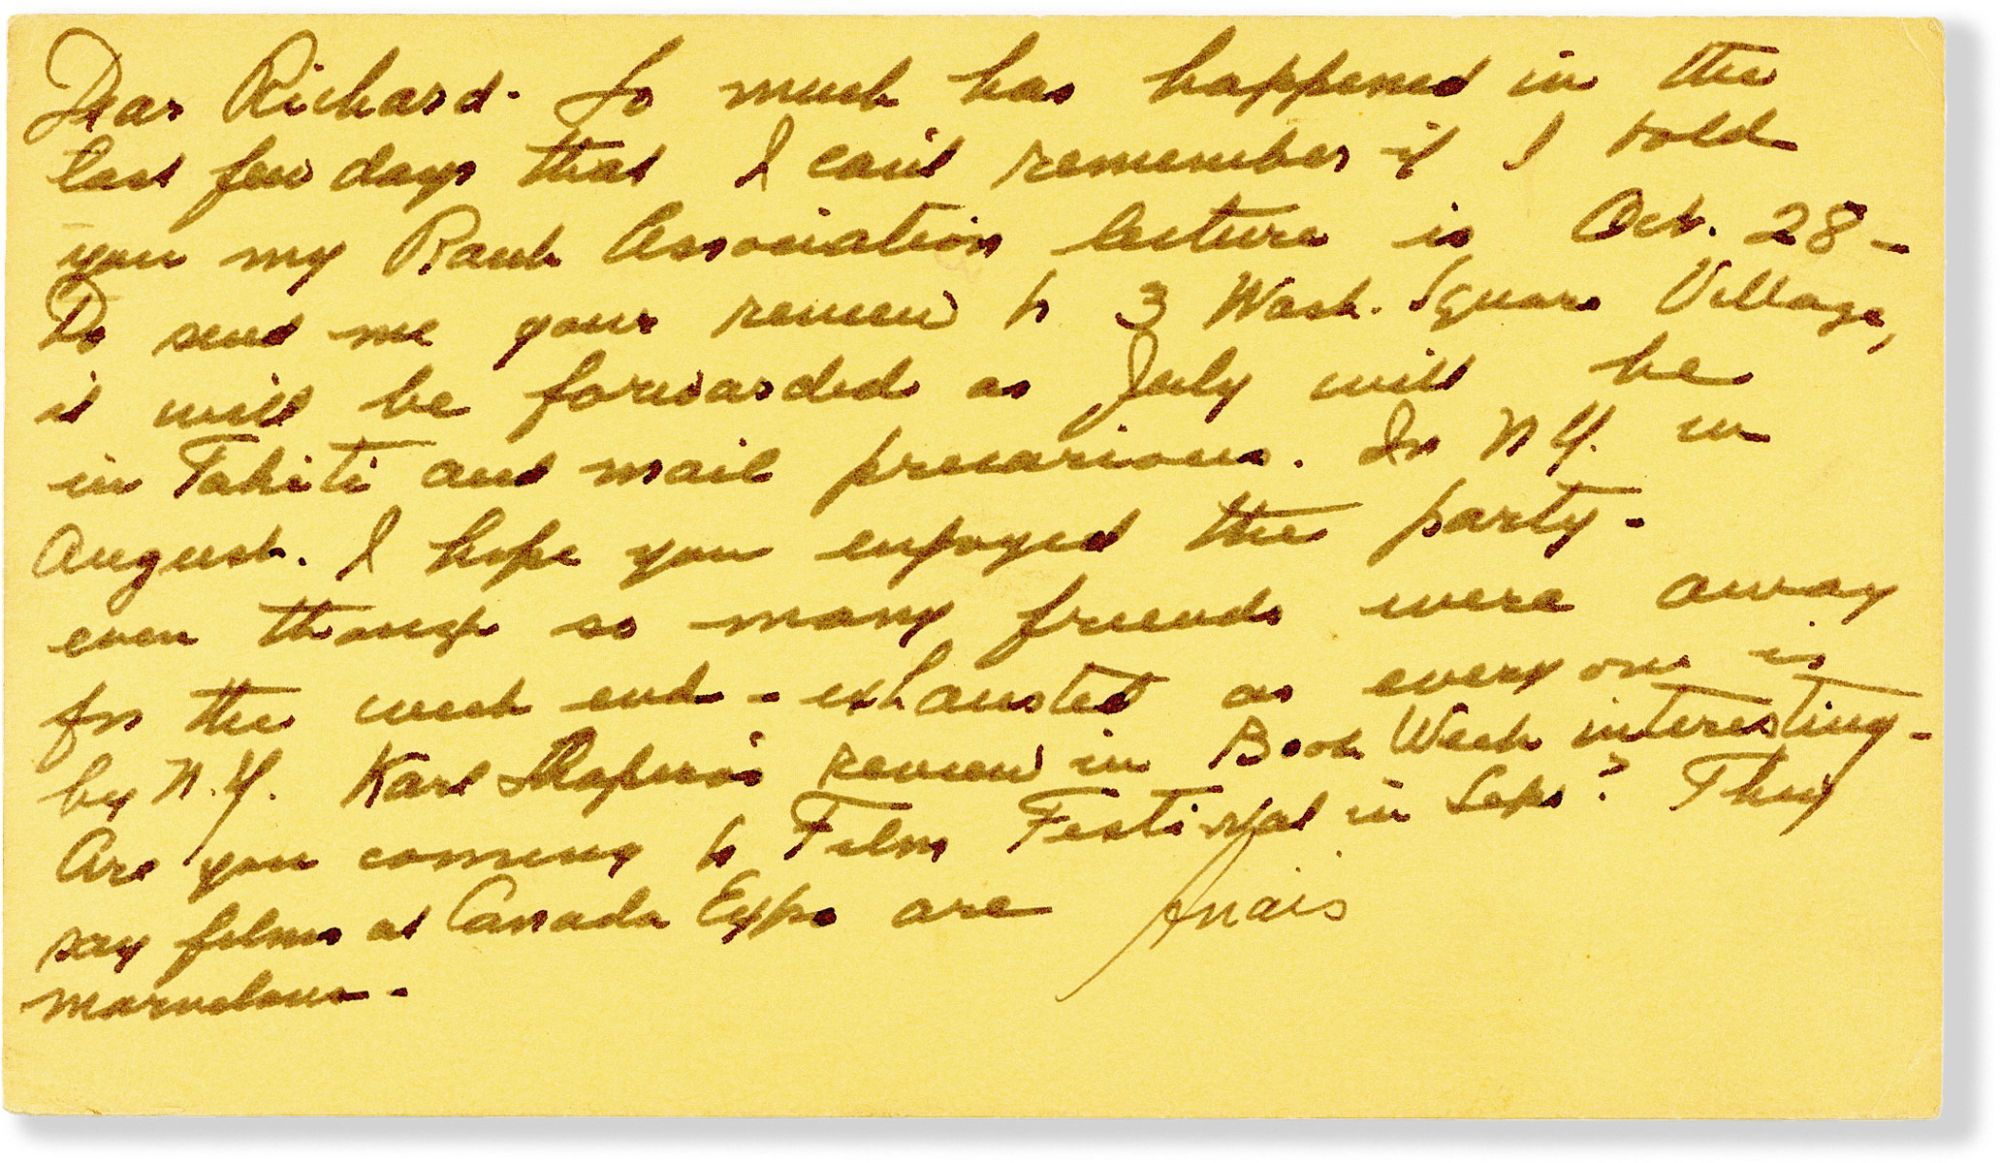 Dear Richard. So much has happened in the
last few days that I can't remember if I told
you my Rank Association lecture is Oct. 28 -
Do send me your review to 3 Wash. Square Village,
it will be forwarded as July will be
in Tahiti and mail precarious. In N.Y. in
August. I hope you enjoyed the party -
even though so many friends were away
for the week end - exhausted as everyone is
by N.Y. Karl Shapiro's review in Book Week interesting -
Are you coming to Film Festival in Sept? They
say films at Canada Expo are
marvelous -
Anais